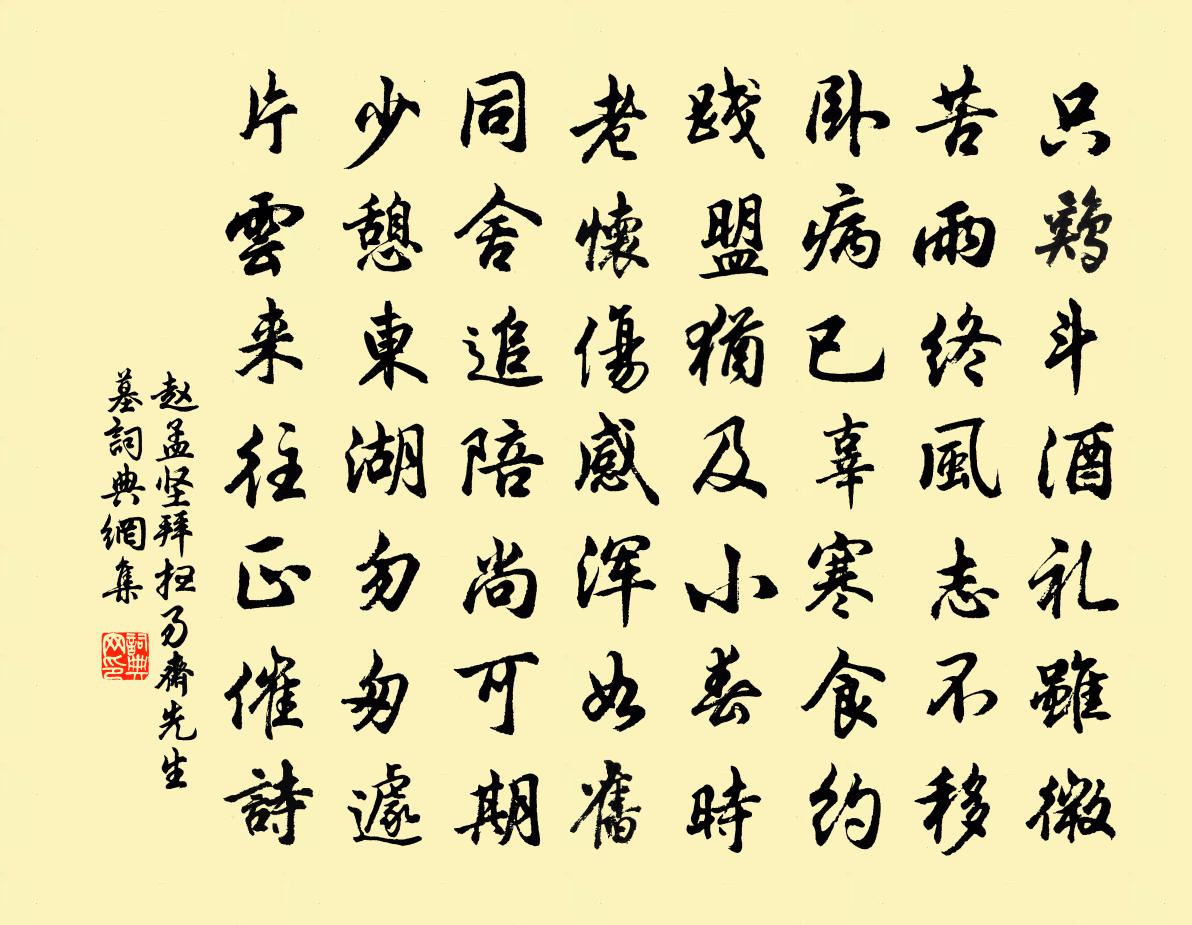 只鷄斗酒礼雖微
苦雨終風志不移
卧病已辜寒食约
践盟猶及小春時
老懷傷感浑如舊
同舍追陪尚可期
少憩東湖勿匆遽
片雲来往正催詩
赵孟坚拜扫易齋先生
墓詞典網集
詞典
网印